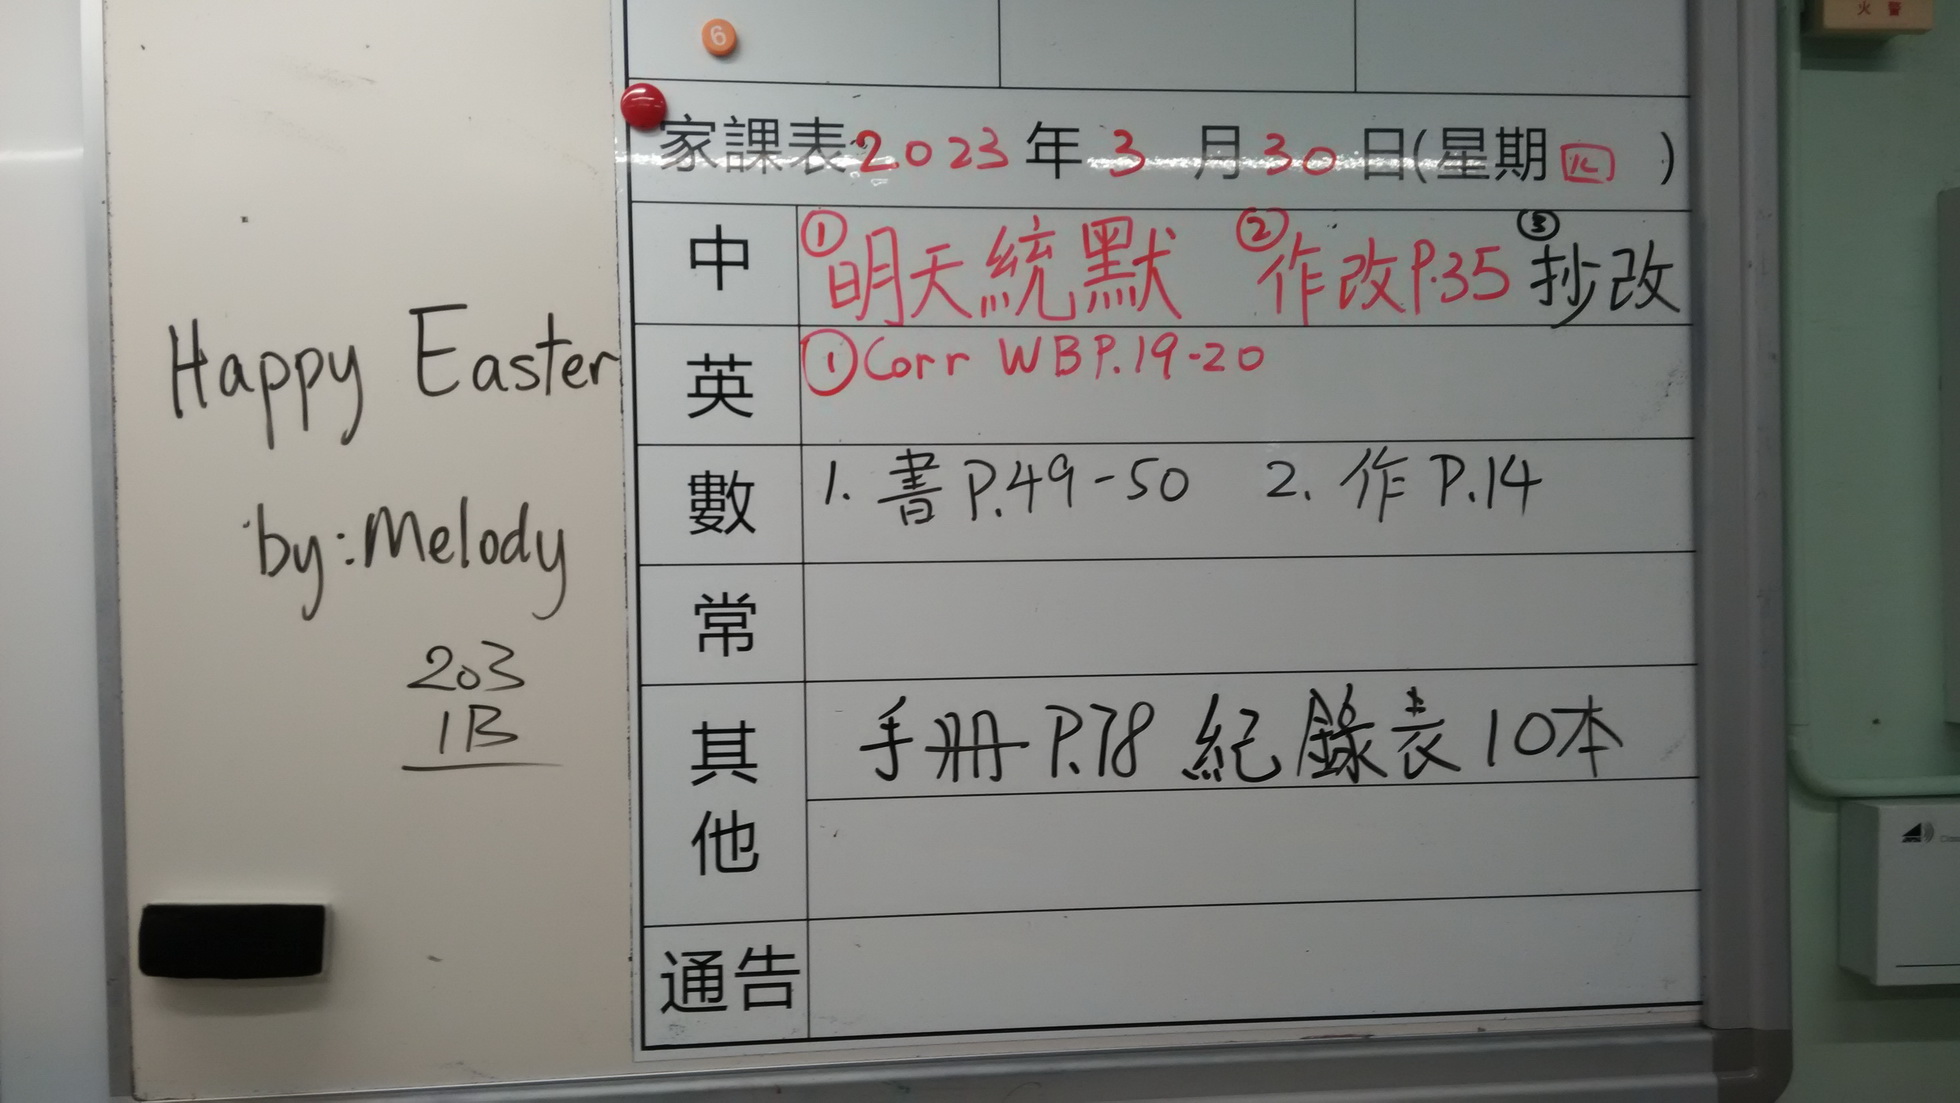 6
火 警
家課表2023年3月30日(星期四)
中 ①明天統默 ②作改P.35 ③抄改
英 ①Corr WB P.19-20
數 1. 書P.49-50 2. 作P.14
常
其他 手冊P.78 紀錄表10本
通告
Happy Easter
by: Melody
203
1B